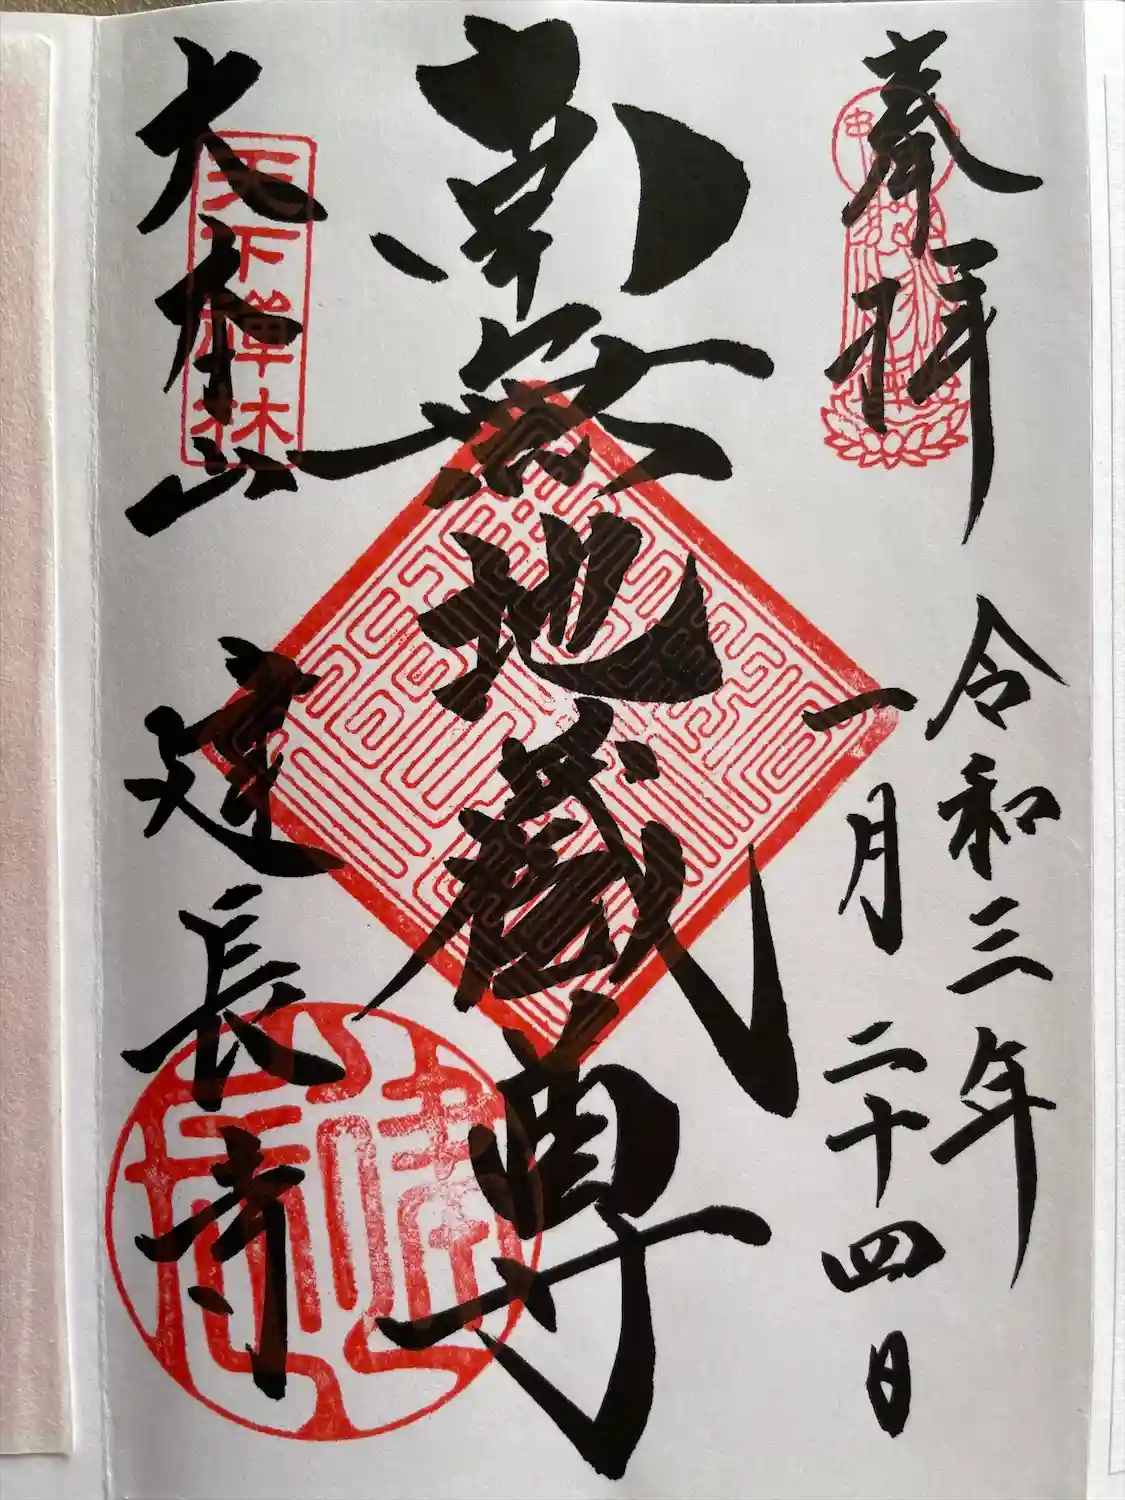 奉拝
令和三年
一月二十四日
南無地蔵尊
天下禅林
大本山 建長寺